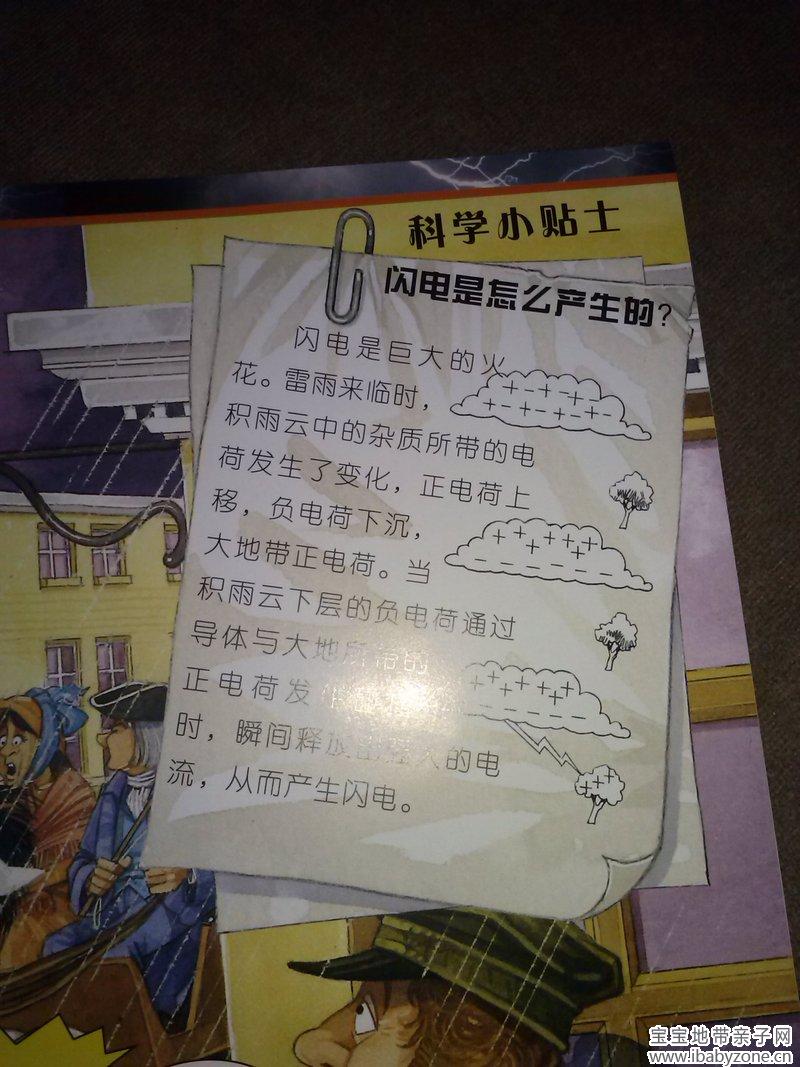 科学小贴士
闪电是怎么产生的?
闪电是巨大的火
花。雷雨来临时，
积雨云中的杂质所带的电
荷发生了变化，正电荷上
移，负电荷下沉，
大地带正电荷。当
积雨云下层的负电荷通过
导体与大地所带的
正电荷发
时，瞬间释放 大的电
流，从而产生闪电。
宝宝地带亲子网
www.ibabyzone.cn